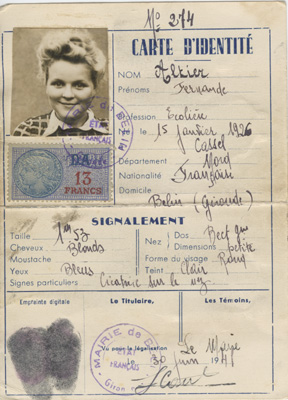 No 274
CARTE D'IDENTITÉ
NOM Alzier
Prénoms Fernande
Profession Écolière
Né le 15 janvier 1926
Cassel
Département Nord
Nationalité Française
Domicile
Belin (Gironde)
ÉTAT
FRANÇAIS
13
FRANCS
SIGNALEMENT
Taille 1m53
Cheveux Blonds
Moustache
Yeux Bleus
Signes particuliers Cicatrice sur le nez
Nez Dos Rect
Dimensions petite
Forme du visage Rond
Teint Clair
Empreinte digitale
Le Titulaire,
Les Témoins,
Vu pour la légalisation
Le Maire
le 30 juin 194
MAIRIE DE
ÉTAT
FRANÇAIS